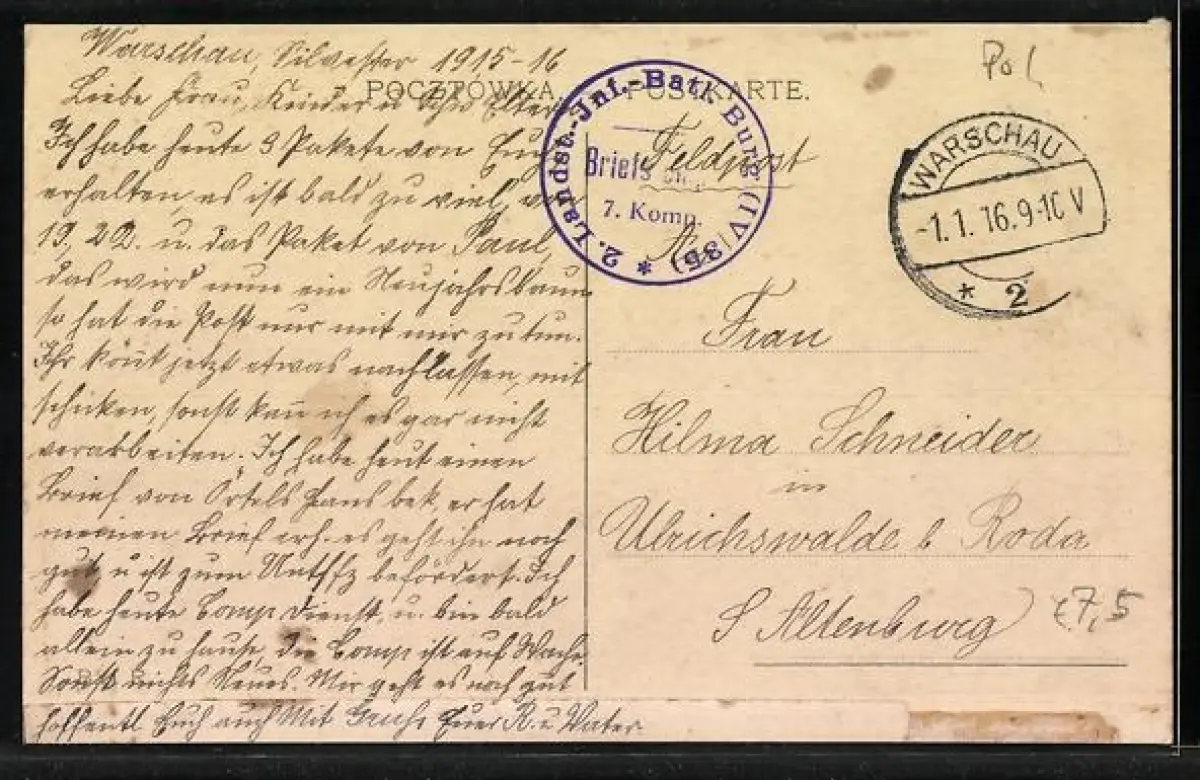 Warschau, Silvester 1915-16
Liebe Frau, Kinder u.
Ich habe heute 3 Pakete von Euch
erhalten, es ist bald zu viel, von
19, 22. u. das Paket von Paul,
das wird nun ein Neujahrsbaum
so hat die Post nur mit mir zu tun.
Ihr könt jetzt etwas nachlassen, mit
schicken, sonst kan ich es gar nicht
verarbeiten. Ich habe heut einen
Brief von Örtels Hans bek. er hat
meinen Brief erh. es geht ihn noch
gut u ist zum Untffz befördert. Ich
habe heute Comp dienst, u. bin bald
allein zu hause, die Comp ist auf Wache
Sonst nichts Neues. Mir geht es noch gut
hoffentl Euch auch Mit Gruß Euer R. u Vater
POCZTÓWKA. POSTKARTE.
Feldpost
2. Landst.-Inf.-Batl. Burg (IV/35) *
Briefs
7. Komp.
Pol
WARSCHAU
-1.1.16.9-10 V
* 2
Frau
Hilma Schneider
in
Ulrichswalde b Roda
S Altenburg
7,5